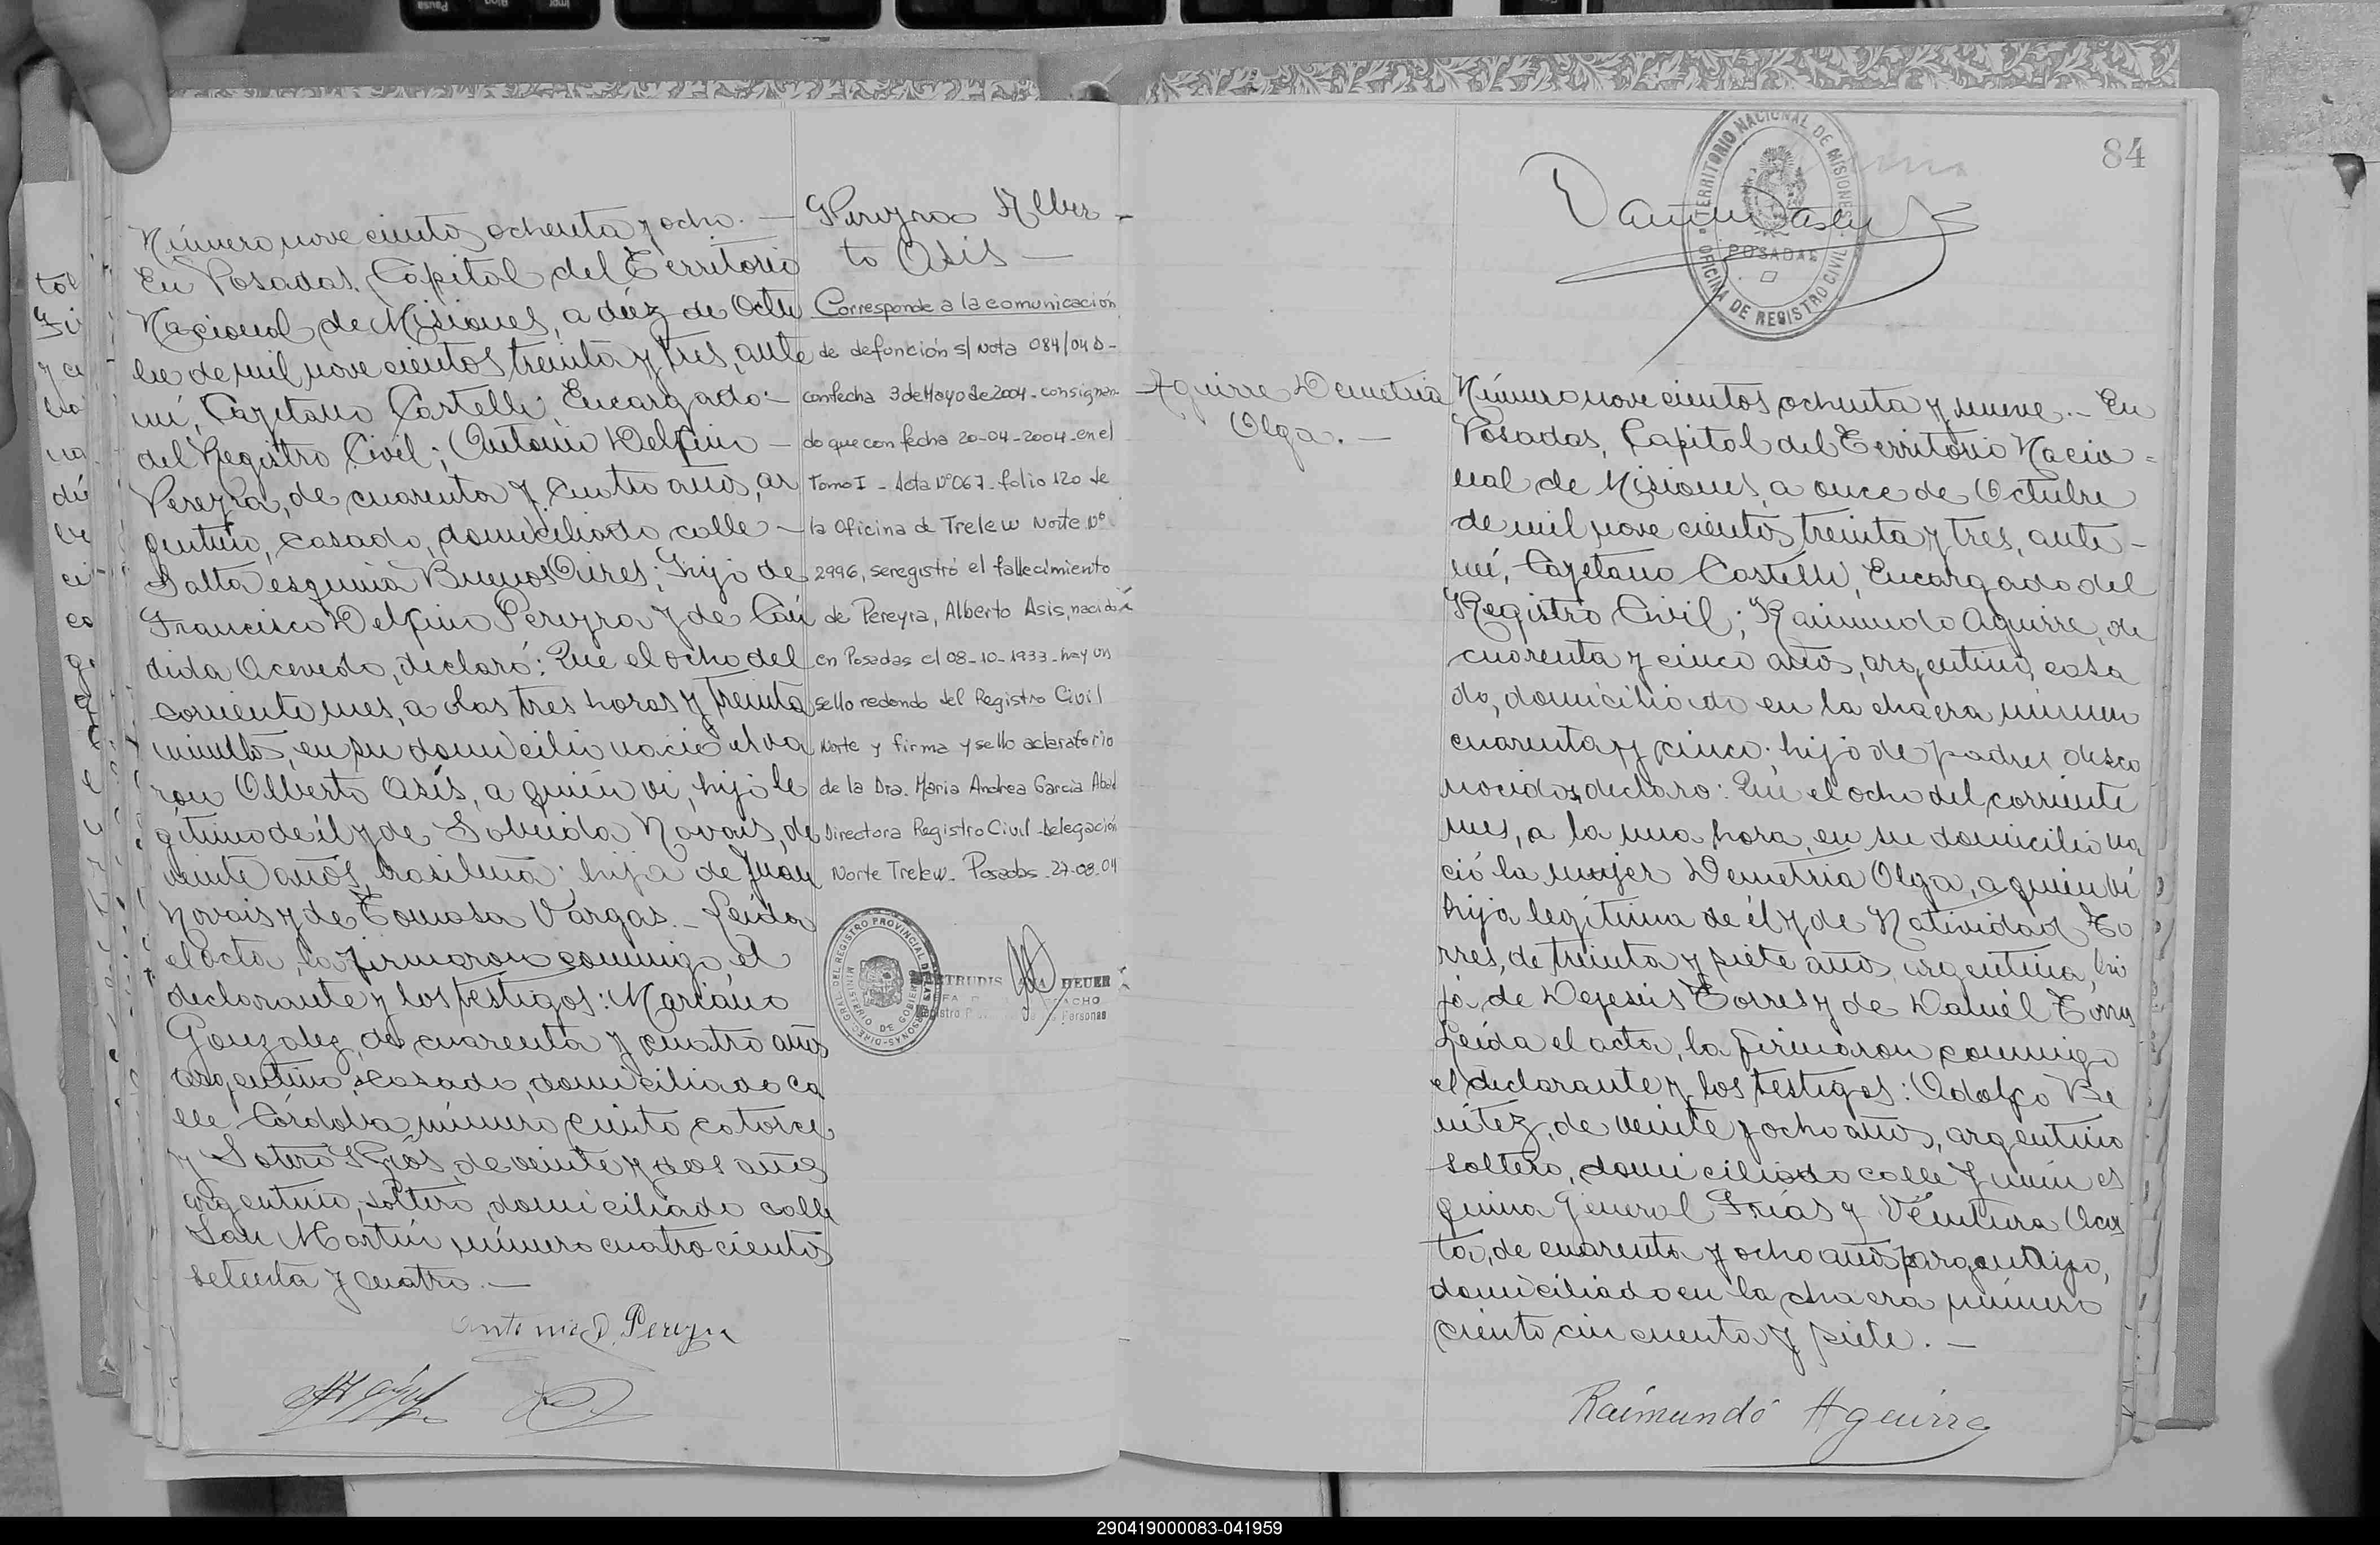 Número nove cientos ochenta y ocho. —
En Posadas, Capital del Territorio
Nacional de Misiones, a diéz de Octu
bre de mil nove cientos treinta y tres, ante
mí, Cayetano Castelli, Encargado -
del Registro Civil; Antonio Delfino —
Pereyra, de cuarenta y cuatro años, ar
gentino, casado, domiciliado calle —
Salta esquina Buenos Aires; hijo de
Francisco Delfino Pereyra y de Cán
dida Acevedo, declaró: Que el ocho del
corriente mes, a las tres horas y treinta
minutos, en su domicilio nació el va
rón Alberto Asís, a quién ví, hijo le
gítimo de él y de Novais, de
veinte años, brasilera; hija de Juan
Novais y de Tomasa Vargas. - Leída
el acta, la firmaron conmigo, el
declarante y los testigos: Mariano
Gonzalez, de cuarenta y cuatro años
argentino, casado, domiciliado ca
lle Córdoba número ciento catorce
y Sotero Ríos, de veinte y dos años
argentino, soltero, domiciliado calle
San Martín número cuatro cientos
setenta y cuatro. —
Antonio D. Pereyra
Pereyra Alber -
to Asis —
Corresponde a la comunicación
de defunción s/ Nota 084/04 D-
con fecha 3 de Mayo de 2004 - consignan-
do que con fecha 20-04-2004 - en el
Tomo I - Acta Nº 067 - folio 120 de
la Oficina de Trelew Norte Nº
2996, se registró el fallecimiento
de Pereyra, Alberto Asis, nacido
en Posadas el 08-10-1933 - hay un
sello redondo del Registro Civil
Norte y firma y sello aclaratorio
de la Dra. Maria Andrea García Abad
Directora Registro Civil - Delegación
Norte Trelew - Posadas - 27-08-04
DIREC. GRAL. DEL REGISTRO PROVINCIAL DE LAS PERSONAS
MINISTERIO DE GOBIERNO
HEUER
84
TERRITORIO NACIONAL DE MISIONES
POSADAS
OFICINA DE REGISTRO CIVIL
Aguirre Demetria
Olga. —
Número nove cientos ochenta y nueve. - En
Posadas, Capital del Territorio Nacio -
nal de Misiones, a once de Octubre
de mil nove cientos treinta y tres, ante -
mí, Cayetano Castelli, Encargado del
Registro Civil; Raimundo Aguirre, de
cuarenta y cinco años, argentino, casa
do, domiciliado en la chacra número
cuarenta y cinco; hijo de padres desco
nocidos, declaro: Que el ocho del corriente
mes, a la una hora, en su domicilio na
ció la mujer Demetria Olga, a quien ví
hija legítima de él y de Natividad To
rres, de treinta y siete años, argentina, hi
ja de Dejesús Torres y de Torres
Leída el acta, la firmaron conmigo
el declarante y los testigos: Adolfo Be
nitez, de veinte y ocho años, argentino
soltero, domiciliado calle Junín es
quina General Frías y Ventura Acos
ta, de cuarenta y ocho años, argentino,
domiciliado en la chacra número
ciento cincuenta y siete. —
Raimundo Aguirre
290419000083-041959